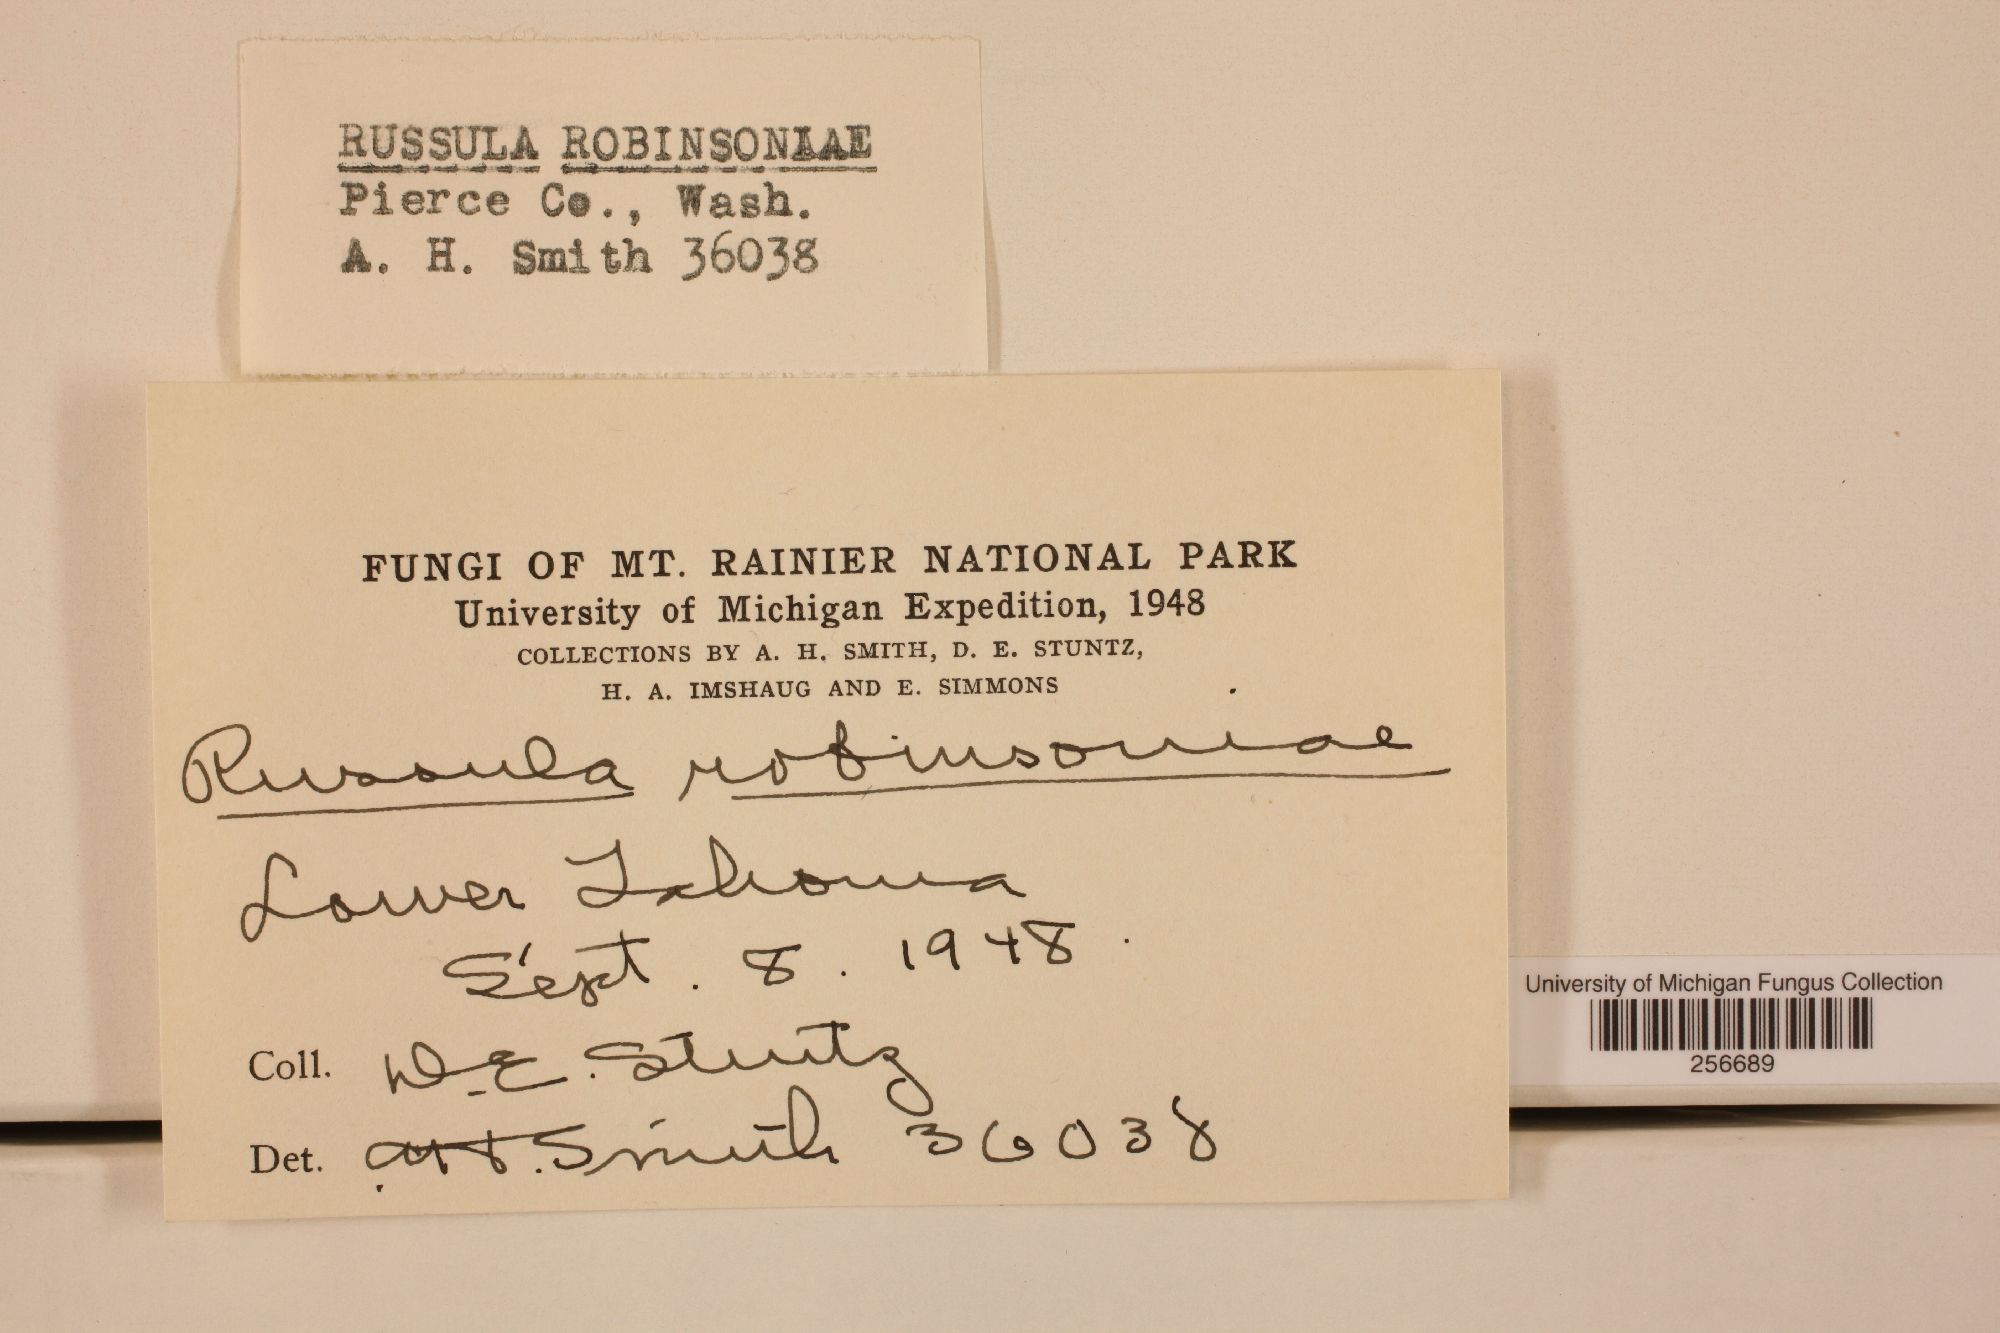 RUSSULA ROBINSONIAE
Pierce Co., Wash.
A. H. Smith 36038
FUNGI OF MT. RAINIER NATIONAL PARK
University of Michigan Expedition, 1948
COLLECTIONS BY A. H. SMITH, D. E. STUNTZ,
H. A. IMSHAUG AND E. SIMMONS
Russula robinsoniae
Lower Tahoma
Sept. 8. 1948.
Coll. D.E. Stuntz
Det. AH. Smith 36038
University of Michigan Fungus Collection
256689